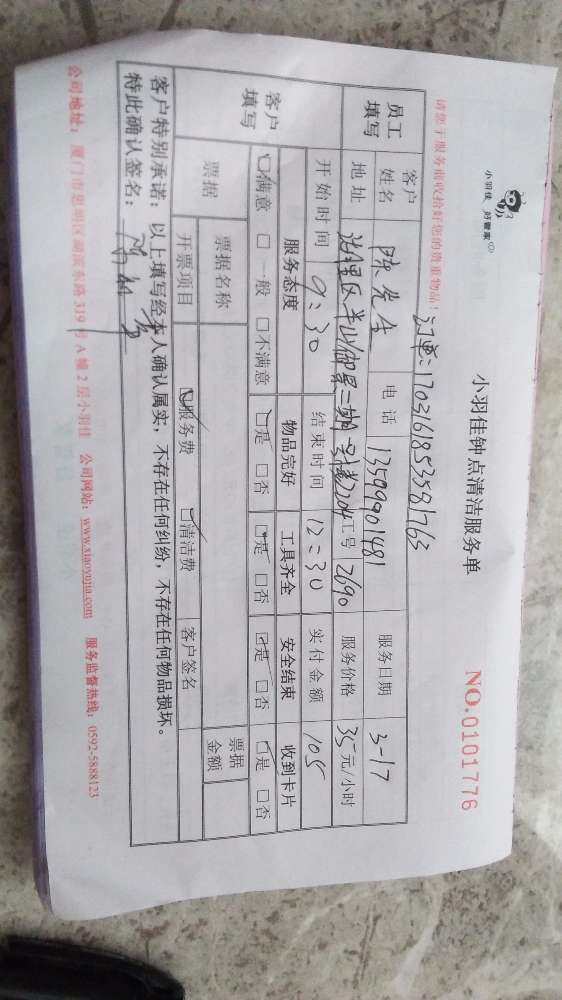 小羽佳 好管家
小羽佳钟点清洁服务单
NO.0101776
请您于服务前收拾好您的贵重物品！
订单:1703161853581763
员工填写 客户姓名 陈先生 电话 13599901481 服务日期 3-17
地址 二期 工号 2690 服务价格 35元/小时
开始时间 9:30 结束时间 12:30 实付金额 105
客户填写 服务态度 物品完好 工具齐全 安全结束 收到卡片
☑满意 □一般 □不满意 ☑是 □否 ☑是 □否 ☑是 □否 ☑是 □否
票据 票据名称 票据金额
开票项目 ☑服务费 ☑清洁费 客户签名
客户特别承诺：以上填写经本人确认属实，不存在任何纠纷，不存在任何物品损坏。
特此确认签名：
公司地址：厦门市思明区湖滨东路319号A幢2层小羽佳 公司网站：www.xiaoyujia.com 服务监督热线：0592-5888123